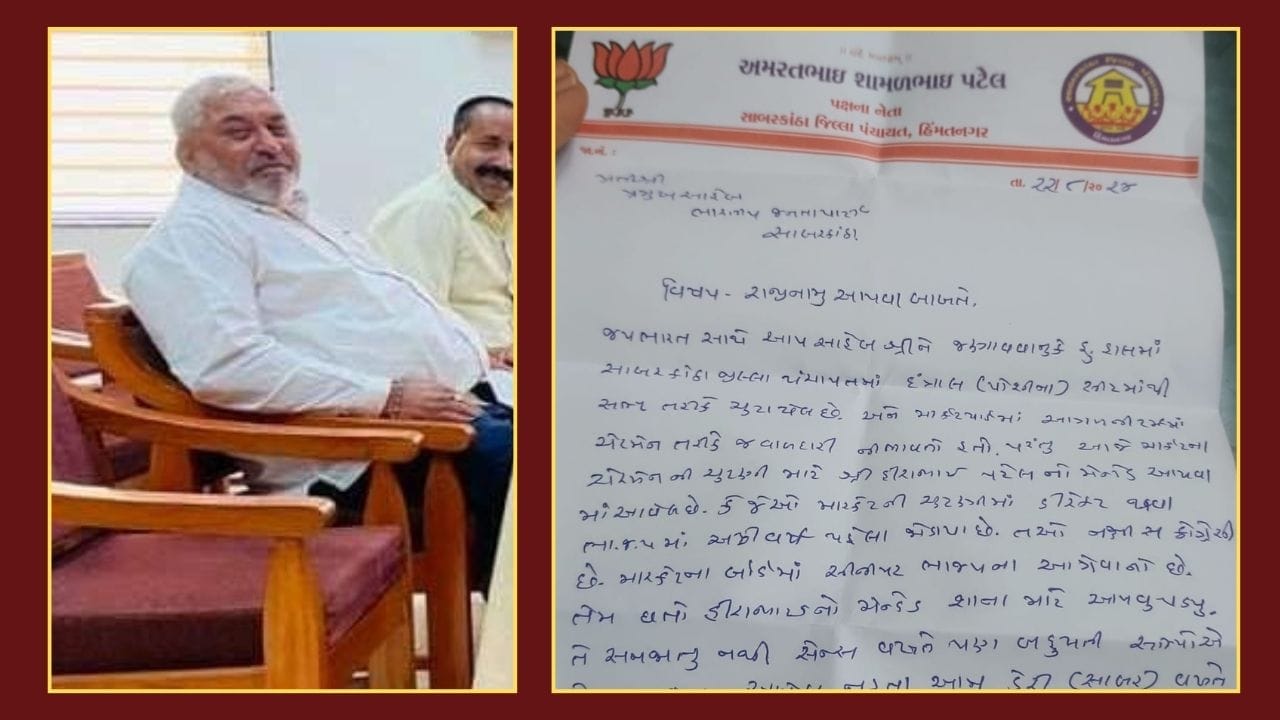 ॥ વંદે માતરમ્ ॥
અમરતભાઇ શામળભાઇ પટેલ
પક્ષના નેતા
સાબરકાંઠા જિલ્લા પંચાયત, હિંમતનગર
BJP
હિંમતનગર
જા.નં. :
તા. ૨૨/૮/૨૦૨૪
પ્રમુખ સાહેબ
ભારતીય જનતા પાર્ટી
સાબરકાંઠા
વિષય - રાજીનામુ આપવા બાબતે.
જયભારત સાથ આપ સાહેબ શ્રીને જણાવવાનુકે હુ હાલમાં
સાબરકાંઠા જીલ્લા પંચાયતમાં દંત્રાલ (પોશીના) સીટમાંથી
સભ્ય તરીકે ચુટાયેલ છે. અને માર્કેટયાર્ડમાં આગળની ટર્મમાં
ચેરમેન તરીકે જવાબદારી નીભાવતો હતો. પરંતુ આજે માર્કેટના
ચેરમેન ની ચુટણી માટે શ્રી હીરાભાઇ પટેલ નો મેન્ડેડ આપવા
માં આવેલ છે. કે જેઓ માર્કેટની ચુટણીમાં ડીરેક્ટર થવા
ભા.જ.પ માં અઢી વર્ષ પહેલા જોડાયા છે. તેઓ કોંગ્રેસી
છે. મારકેટના બોર્ડમાં સીનીયર ભાજપના આગેવાનો છે.
તેમ છતાં હીરાભાઇનો મેન્ડેડ શાના માટે આપવુ પડ્યુ.
તે સમજાતુ નથી સેન્સ વખતે પણ બહુમતી સભ્યોએ
આમ ડેરી (સાબર) વખતે